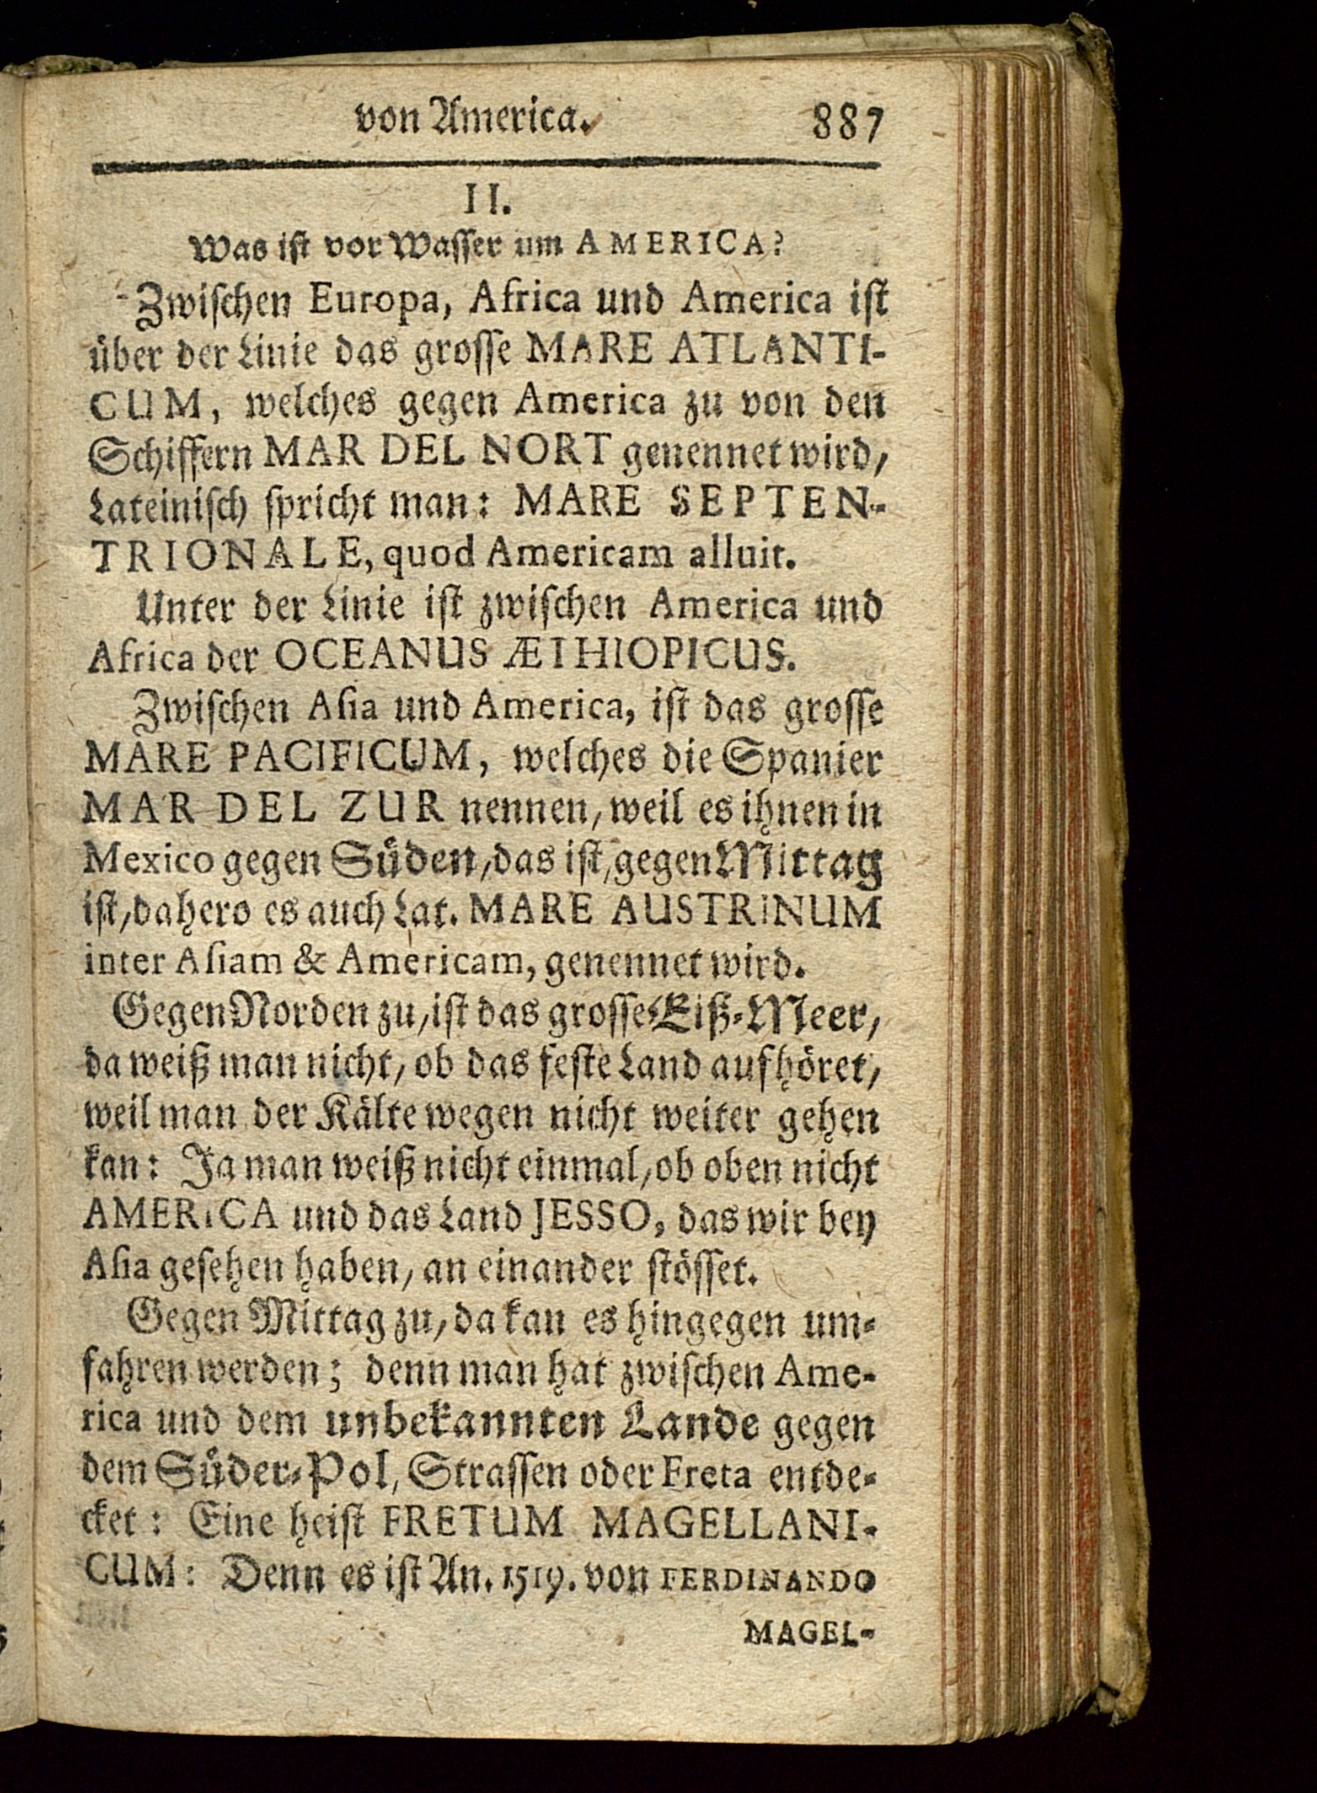 von America. 887
II.
Was ist vor Wasser um AMERICA?
Zwischen Europa, Africa und America ist
über der Linie das grosse MARE ATLANTI-
CUM, welches gegen America zu von den
Schiffern MAR DEL NORT genennet wird,
Lateinisch spricht man: MARE SEPTEN-
TRIONALE, quod Americam alluit.
Unter der Linie ist zwischen America und
Africa der OCEANUS ÆTHIOPICUS.
Zwischen Asia und America, ist das grosse
MARE PACIFICUM, welches die Spanier
MAR DEL ZUR nennen, weil es ihnen in
Mexico gegen Süden, das ist, gegen Mittag
ist, dahero es auch Lat. MARE AUSTRINUM
inter Asiam & Americam, genennet wird.
Gegen Norden zu, ist das grosse Eiß-Meer,
da weiß man nicht, ob das feste Land aufhöret,
weil man der Kälte wegen nicht weiter gehen
kan: Ja man weiß nicht einmal, ob oben nicht
AMERICA und das Land JESSO, das wir bey
Asia gesehen haben, an einander stösset.
Gegen Mittag zu, da kan es hingegen um-
fahren werden; denn man hat zwischen Ame-
rica und dem unbekannten Lande gegen
dem Süder-Pol, Strassen oder Freta entde-
cket: Eine heist FRETUM MAGELLANI-
CUM: Denn es ist An. 1519. von FERDINANDO
MAGEL-